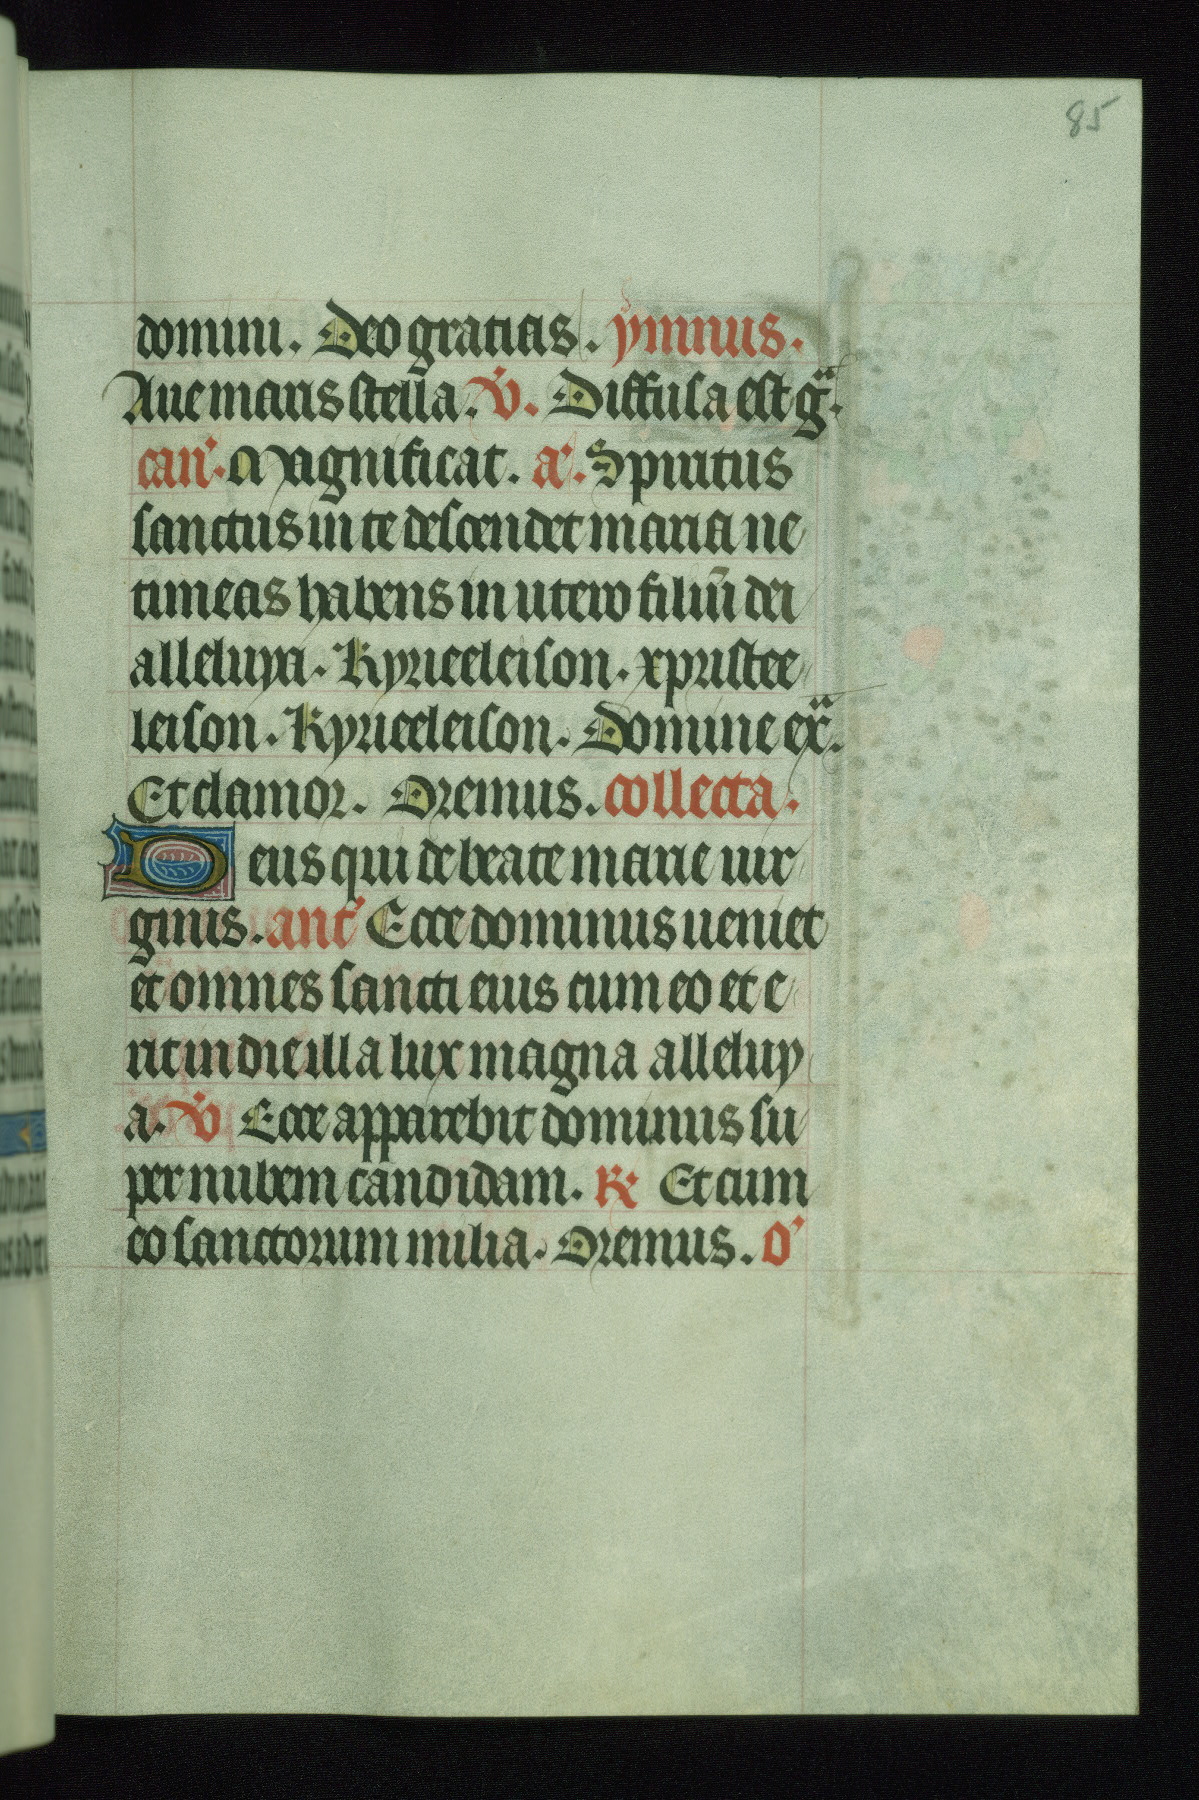 85
domini. Deo gratias. ymnus.
Aue maris stella. V̓. Diffusa est gᵃ.
can̓. Magnificat. a̓. Spiritus
sanctus in te descendet maria ne
timeas habens in utero filiū dei
alleluya. Kyrieeleison. xpristee
leison. Kyrieeleison. Domine exᵃ.
Et clamor. Oremus. collecta.
Deus qui de beate marie uir
ginis. ant̓ Ecce dominus ueniet
et omnes sancti eius cum eo et e
rit in die illa lux magna alleluy
a. V̓ Ecce apparebit dominus su
per nubem candidam. R̓ Et cum
eo sanctorum milia. Oremus. o̓